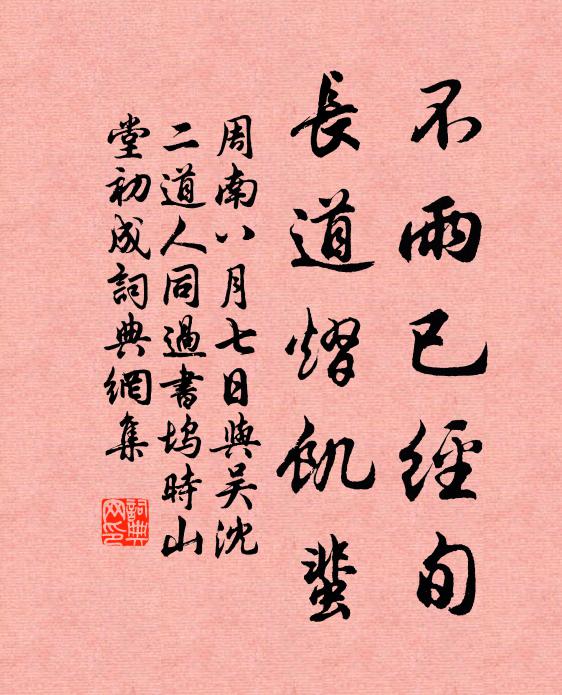 不雨已經旬
長道熠飢蜚
周南八月七日與吴沈
二道人同過書塢時山
堂初成詞典網集
詞典网印